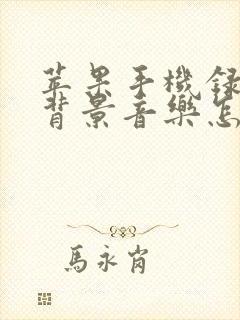 苹果手機録
背景音樂怎
馬永肖